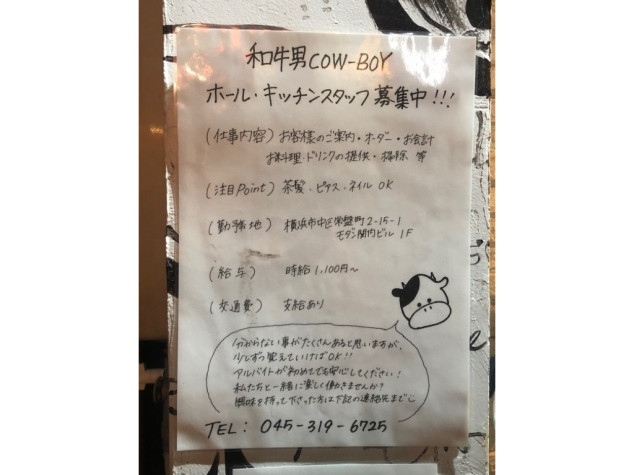 和牛男COW-BOY
ホール・キッチンスタッフ募集中!!!
(仕事内容) お客様のご案内・オーダー・お会計
お料理.ドリンクの提供・掃除 等
(注目Point) 茶髪.ピアス.ネイルOK
(勤務地) 横浜市中区常盤町2-15-1
モダン関内ビル 1F
(給与) 時給1,100円〜
(交通費) 支給あり
分からない事がたくさんあると思いますが、
少しずつ覚えていけばOK!!
アルバイトが初めてでも安心してください!
私たちと一緒に楽しく働きませんか?
興味を持って下さった方は下記の連絡先まで
TEL: 045-319-6725